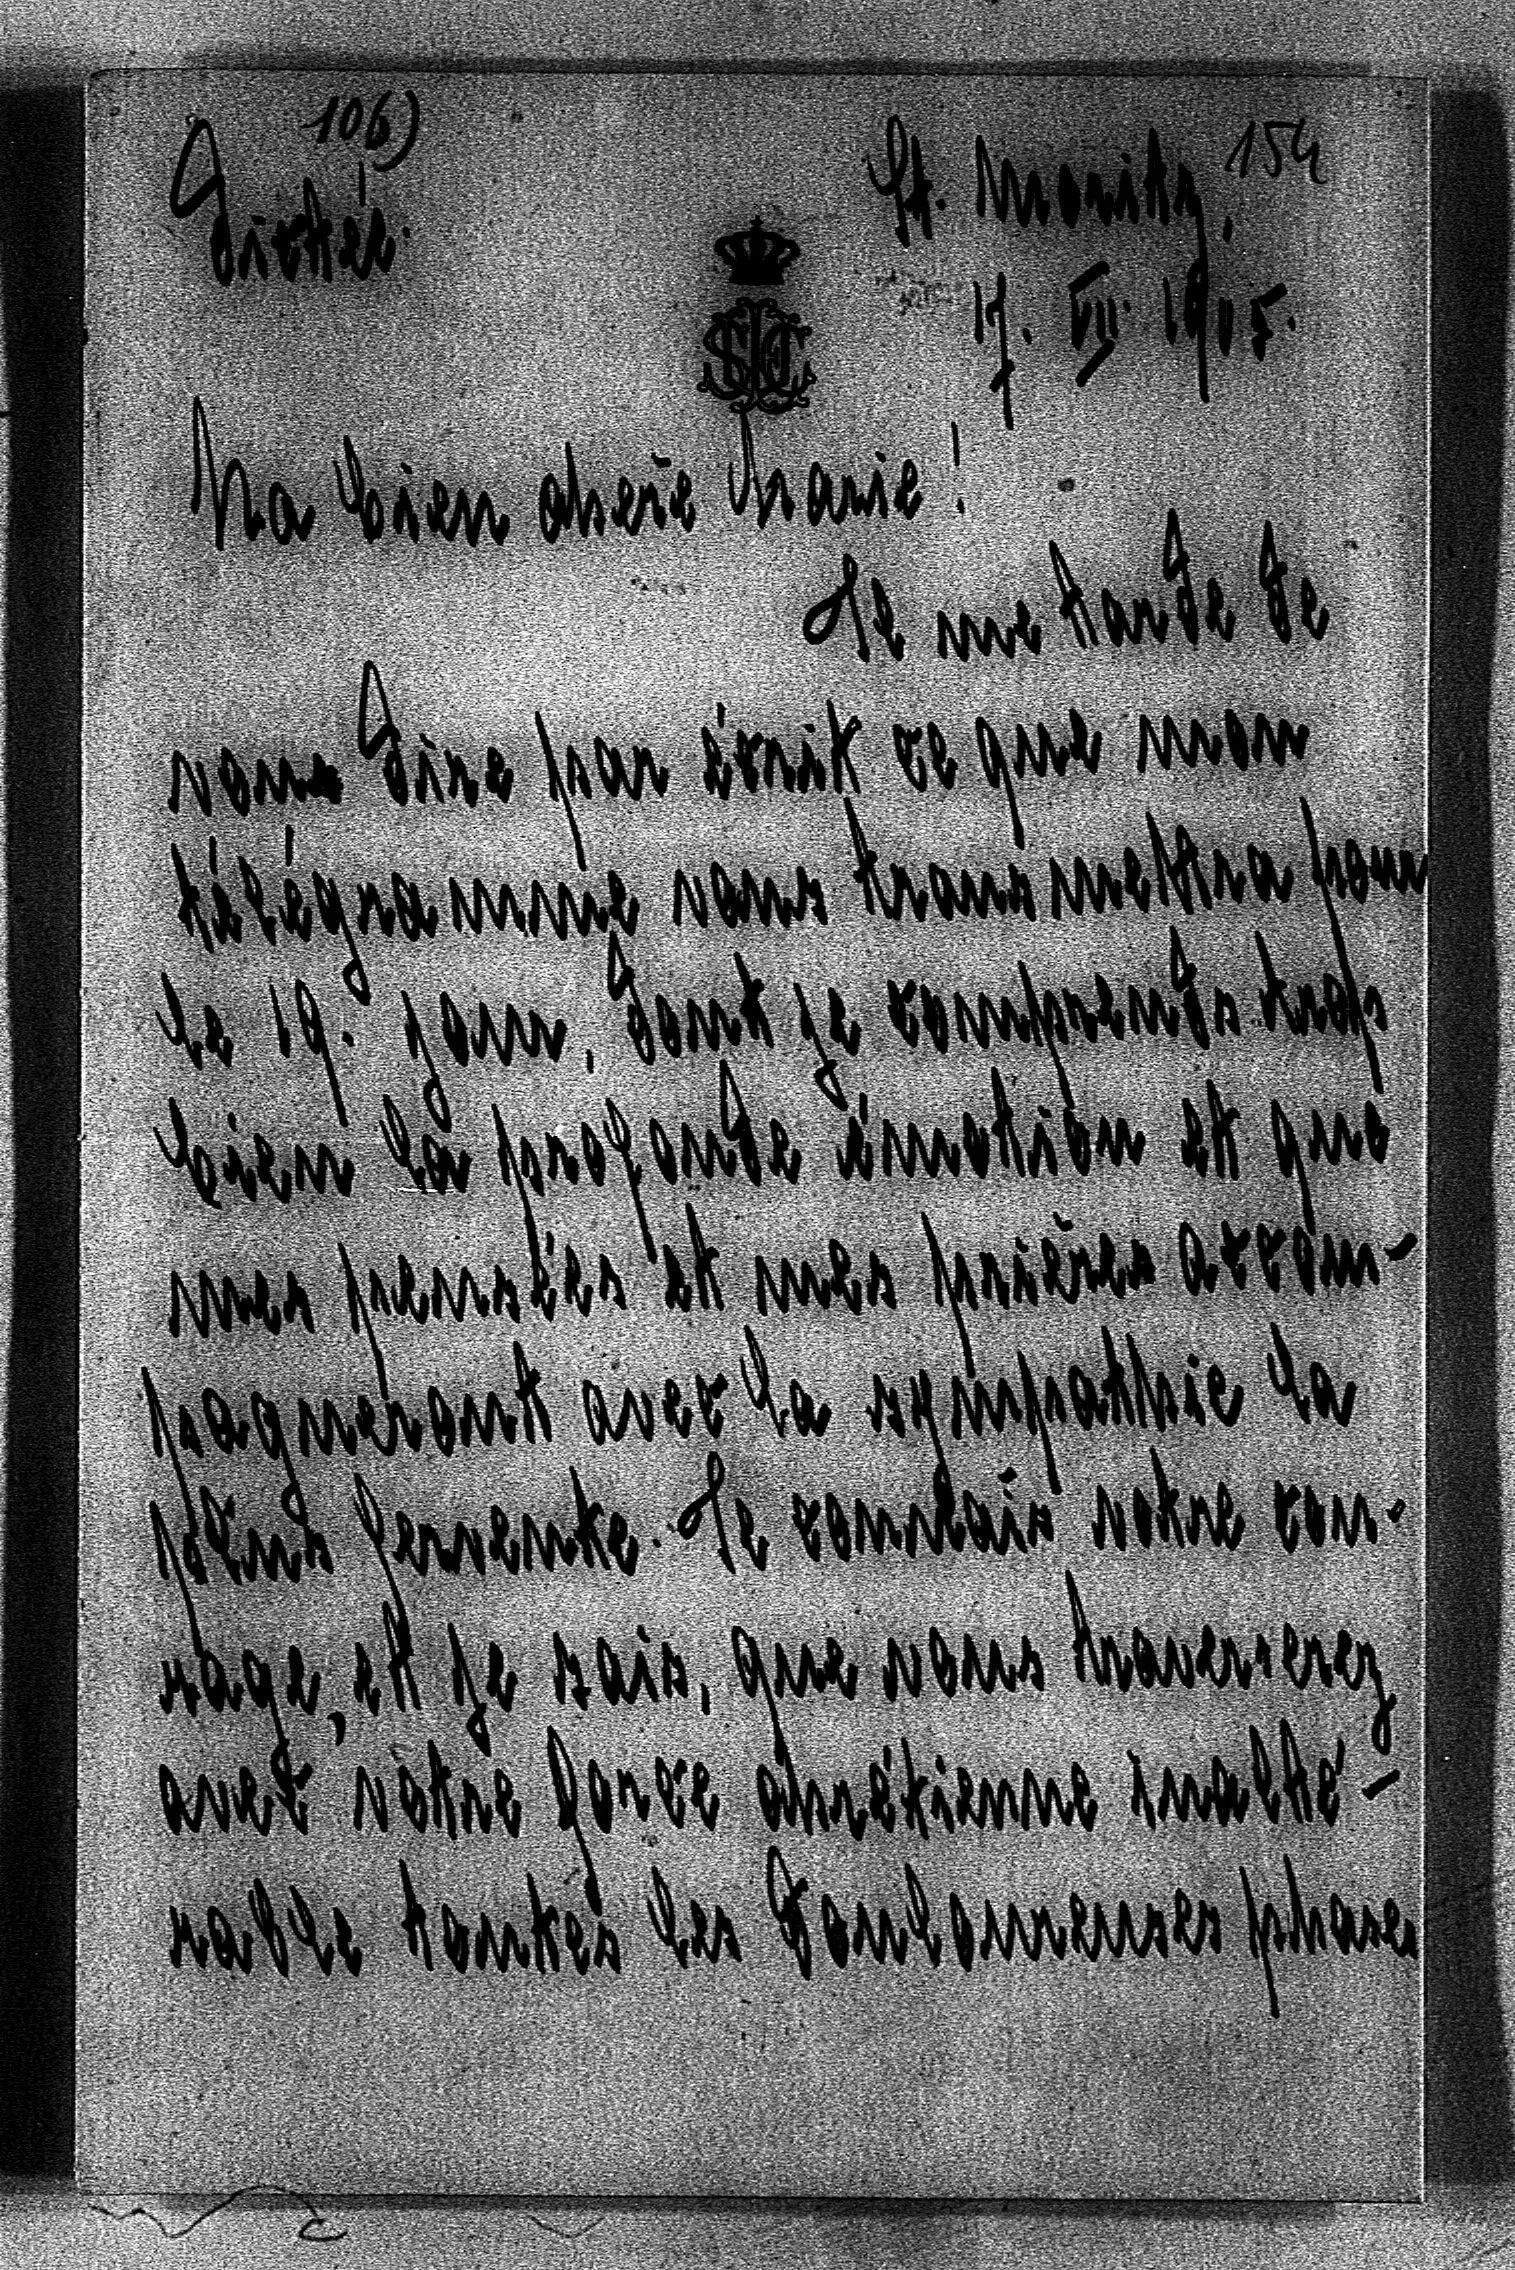 106)
154
Dictée.
St. Moritz,
17. VII. 1905.
Ma bien cherie Marie!
Il me tarde de
vous dire par écrit ce que mon
télégramme vous transmettra pour
le 19. jour, dont je comprends trop
bien la profonde émotion et que
mes pensées et mes prières accom-
pagneront avec la sympathie la
plus fervente. Je connais votre cou-
rage, et je sais, que vous traverserez
avec votre force chrétienne inalté-
rable toutes les douloureuses phases